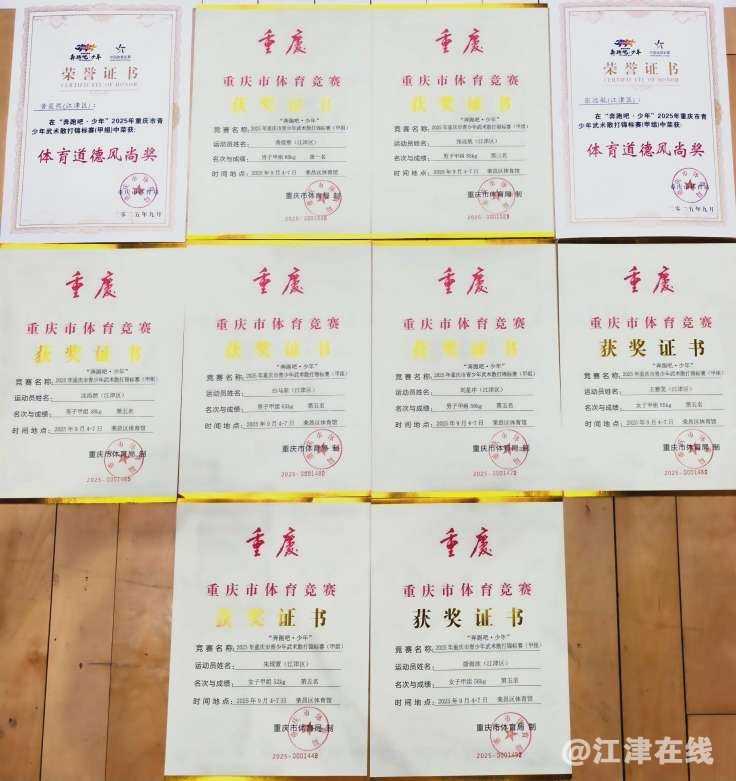 奔跑吧·少年
荣誉证书
CERTIFICATE OF HONOR
(江津区):
在“奔跑吧·少年”2025年重庆市青
少年武术散打锦标赛(甲组)中荣获:
体育道德风尚奖
二〇二五年九月
重庆
重庆市体育竞赛
获奖证书
“奔跑吧·少年”
竞赛名称:2025年重庆市青少年武术散打锦标赛(甲组)
运动员姓名:(江津区)
名次与成绩:男子甲组 第一名
时间地点:2025年9月4-7日 荣昌区体育馆
重庆市体育局 制
重庆
重庆市体育竞赛
获奖证书
“奔跑吧·少年”
竞赛名称:2025年重庆市青少年武术散打锦标赛(甲组)
运动员姓名:(江津区)
名次与成绩:男子甲组 第三名
时间地点:2025年9月4-7日 荣昌区体育馆
重庆市体育局 制
奔跑吧·少年
荣誉证书
CERTIFICATE OF HONOR
(江津区):
在“奔跑吧·少年”2025年重庆市青
少年武术散打锦标赛(甲组)中荣获:
体育道德风尚奖
二〇二五年九月
重庆
重庆市体育竞赛
获奖证书
“奔跑吧·少年”
竞赛名称:2025年重庆市青少年武术散打锦标赛(甲组)
运动员姓名:(江津区)
名次与成绩:男子甲组 第五名
时间地点:2025年9月4-7日 荣昌区体育馆
重庆市体育局 制
重庆
重庆市体育竞赛
获奖证书
“奔跑吧·少年”
竞赛名称:2025年重庆市青少年武术散打锦标赛(甲组)
运动员姓名:(江津区)
名次与成绩:男子甲组 第五名
时间地点:2025年9月4-7日 荣昌区体育馆
重庆市体育局 制
重庆
重庆市体育竞赛
获奖证书
“奔跑吧·少年”
竞赛名称:2025年重庆市青少年武术散打锦标赛(甲组)
运动员姓名:(江津区)
名次与成绩:男子甲组 第五名
时间地点:2025年9月4-7日 荣昌区体育馆
重庆市体育局 制
重庆
重庆市体育竞赛
获奖证书
“奔跑吧·少年”
竞赛名称:2025年重庆市青少年武术散打锦标赛(甲组)
运动员姓名:(江津区)
名次与成绩:女子甲组 第五名
时间地点:2025年9月4-7日 荣昌区体育馆
重庆市体育局 制
重庆
重庆市体育竞赛
获奖证书
“奔跑吧·少年”
竞赛名称:2025年重庆市青少年武术散打锦标赛(甲组)
运动员姓名:(江津区)
名次与成绩:女子甲组 52kg 第五名
时间地点:2025年9月4-7日 荣昌区体育馆
重庆市体育局 制
重庆
重庆市体育竞赛
获奖证书
“奔跑吧·少年”
竞赛名称:2025年重庆市青少年武术散打锦标赛(甲组)
运动员姓名:(江津区)
名次与成绩:女子甲组 56kg 第五名
时间地点:2025年9月4-7日 荣昌区体育馆
重庆市体育局 制
@江津在线